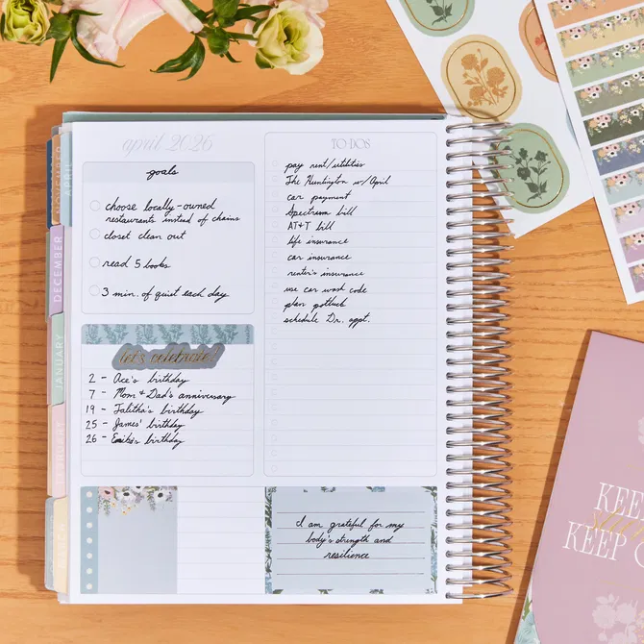 april 2026
goals
choose locally-owned
restaurants instead of chains
closet clean out
read 5 books
3 min. of quiet each day
let's celebrate!
2 - Ace's birthday
7 - Mom & Dad's anniversary
19 - Talitha's birthday
25 - James' birthday
26 - birthday
TO DOS
pay rent/utilities
The Huntington w/ April
car payment
Spectrum bill
AT&T bill
life insurance
car insurance
renter's insurance
use car wash code
plan potluck
schedule Dr. appt.
I am grateful for my
body's strength and
resilience
DECEMBER
JANUARY
KEEP
KEEP